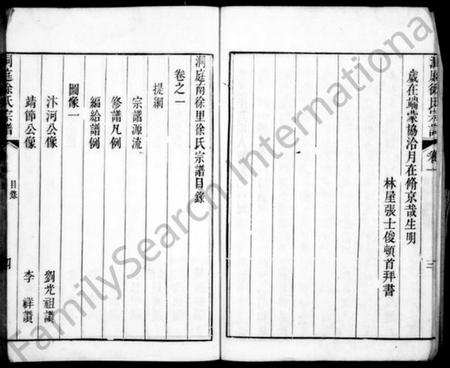 洞庭徐氏宗譜
卷一
三
歲在端蒙協洽月在脩京哉生明
林屋張士俊頓首拜書
洞庭南徐里徐氏宗譜目錄
卷之一
提綱
宗譜源流
修譜凡例
編給譜例
圖像一
汴河公像 劉光祖讚
靖節公像 李祥讚
洞庭徐氏宗譜
目錄
四
FamilySearch International